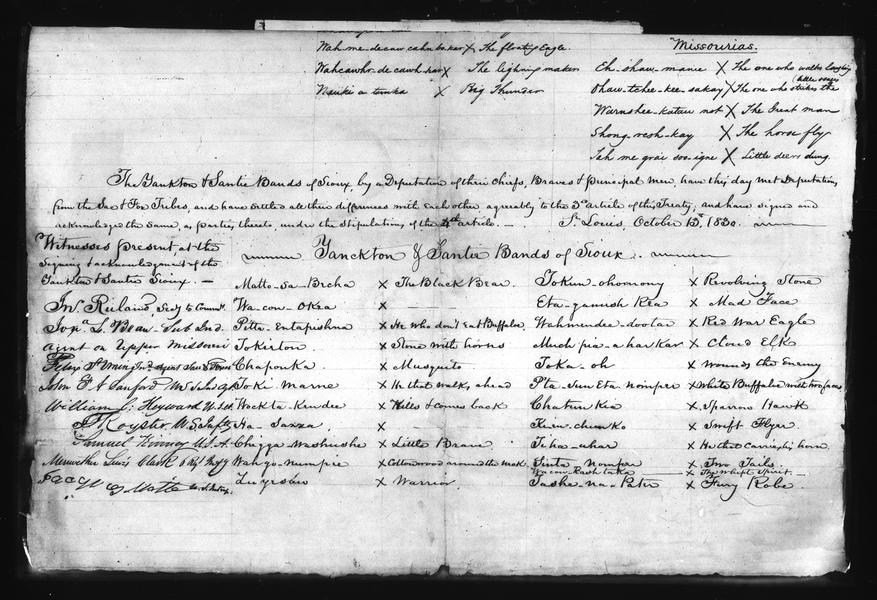 Wah-me-decaw-cahn-bo-ker X The floating Eagle.
Wahcawhr-de cawh-kaw X The lighning maker
Nauki a tunka X Big Thunder
Missourias.
Eh-shaw-manie X The one who walks laughing
Ohaw-tchee-kee-sakay X The one who strikes the (little osages
Warnshee-katau nat X The Great man
Shong-resh-kay X The horse fly
Teh me grai soo-igne X Little deers dung.
The Yankton & Santie Bands of Sioux, by a Deputation of their Chiefs, Braves & Principal Men, have this day met Deputations
from the Sac & Fox Tribes, and have settled all their differences with each other agreeably to the articles of this Treaty, and have signed and
acknowledged the same, as parties thereto, under the Stipulations of the article. St. Louis, October 13th, 1830.
Witnesses present, at the
signing & acknowledgment of the
Yankton & Santie Sioux. —
Jno. Ruland, Secy to Comms.
Jona. L. Bean, Sub Ind.
agent on Upper Missouri
Felix St. Vrain Ind. agent Sacs & Foxes
John F. A. Sanford US Ind Ag
William C. Heyward U.S.A.
D. J. Royster U.S. Infty
Samuel Kinney U.S.A.
Meriwether Lewis Clark 6 Regt Infy
Jacques Mette
Yanckton & Santie Bands of Sioux.
Matto-Sa-Becha X The Black Bear
Wa-con-Okea X —
Pitta-Eutapishna X He who dont Eat Buffalo
Tokerton X Stone with horns
Chaponka X Musquito
To ki-Marne X He that walks ahead
Wock ta-Kendee X Kills & comes back
Ha-Sazza X —
Chigga-Washushe X Little Brave
Wah go-Numpie X Cottonwood around the neck
Zuyesaw X Warrior
Tokun-ohomony X Revolving Stone
Eta-ganush Kea X Mad Face
Wahmendee-dootar X Red War Eagle
Muck pea-a har kar X Cloud Elk
To ka-oh X wounds the Enemy
Pta-sun Eta-nomper X White Buffalo with two faces
Chatun Kia X Sparrow Hawk
Ke-un-chunko X Swift Flyer
Ti ha-uhar X He that carries his horn
Sinta Nomper X Two Tails
Wacon Rashtaka X The whipt Spirit
Tashe-na-Pater X Fiery Robe